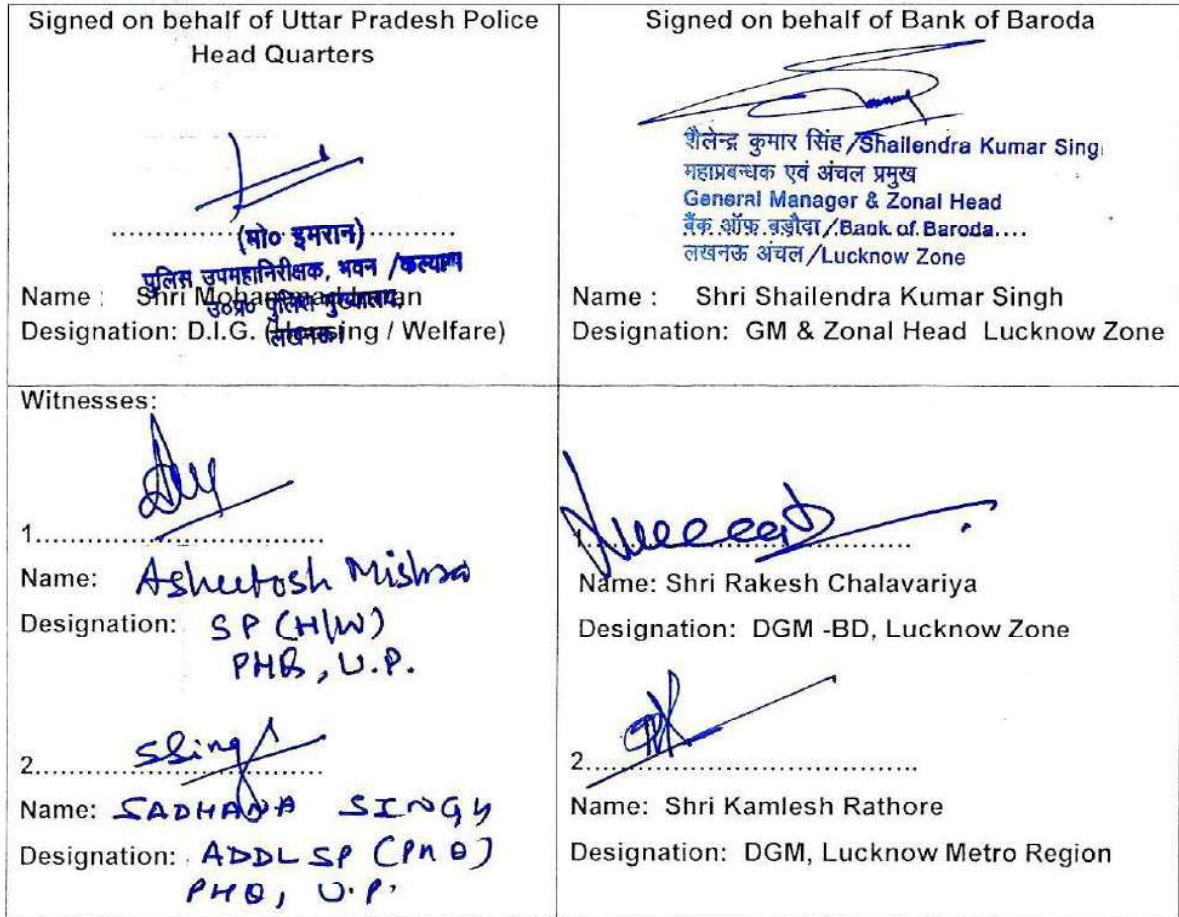 Signed on behalf of Uttar Pradesh Police
Head Quarters
(मो० इमरान)
पुलिस उपमहानिरीक्षक, भवन /कल्याण
उ०प्र० पुलिस मुख्यालय,
लखनऊ।
Name : Shri
Designation: D.I.G. (Housing / Welfare)
Signed on behalf of Bank of Baroda
शैलेन्द्र कुमार सिंह/Shailendra Kumar Sing
महाप्रबन्धक एवं अंचल प्रमुख
General Manager & Zonal Head
बैंक ऑफ़ बड़ौदा/Bank of Baroda....
लखनऊ अंचल/Lucknow Zone
Name : Shri Shailendra Kumar Singh
Designation: GM & Zonal Head Lucknow Zone
Witnesses:
1..............................
Name: Ashutosh Mishra
Designation: SP (H/W)
PHQ, U.P.
2. SSingh
Name: SADHANA SINGH
Designation: ADDL SP (PHQ)
PHQ, U.P.
1..............................
Name: Shri Rakesh Chalavariya
Designation: DGM -BD, Lucknow Zone
2..............................
Name: Shri Kamlesh Rathore
Designation: DGM, Lucknow Metro Region